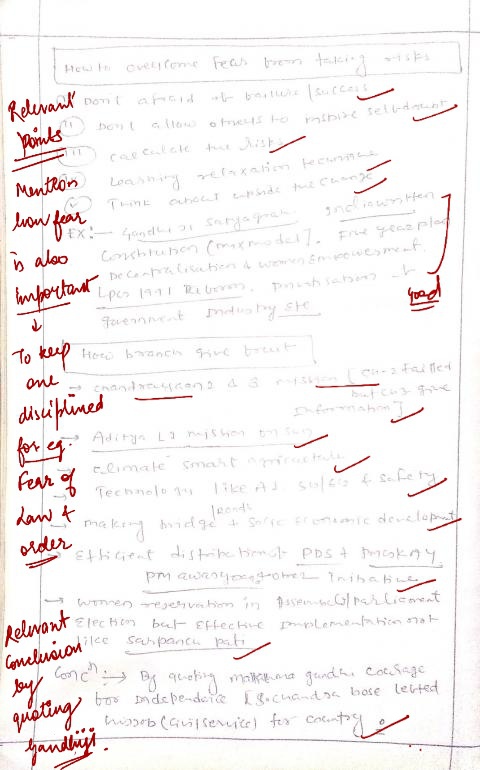 How to overcome fear from taking risks
Relevant
Points
Mention
how fear
is also
important
↓
To keep
one
disciplined
for eg.
Fear of
Law &
order
Relevant
Conclusion
by
quoting
Gandhiji.
i) Don't afraid of failure/success
ii) Don't allow others to inspire self-doubt
iii) calculate the risks
Learning relaxation technique
v) Think about upside the change
Ex:- Gandhi's satyagrah, written
Constitution (mix model). Five year plan
Decentralisation & women Empowerment.
LPG 1991 Reform, Privatisation of
government Industry etc
Good
How branch give fruit
→ chandrayaan 2 & 3 mission [CH-2 failed
but CH3 give
Information]
→ Aditya L1 mission on sun
→ climate smart agriculture
→ Technologies like AI & safety
→ making bridge + roads socio economic development
→ Efficient distribution of PDS + PMGKAY
PM awas yog other Initiative
→ women reservation in Assembly/parliament
Election but effective implementation not
like sarpanch pati
Concn :→ By quoting mahatma gandhi courage
for Independence, S. chandra bose
job (civil service) for country.